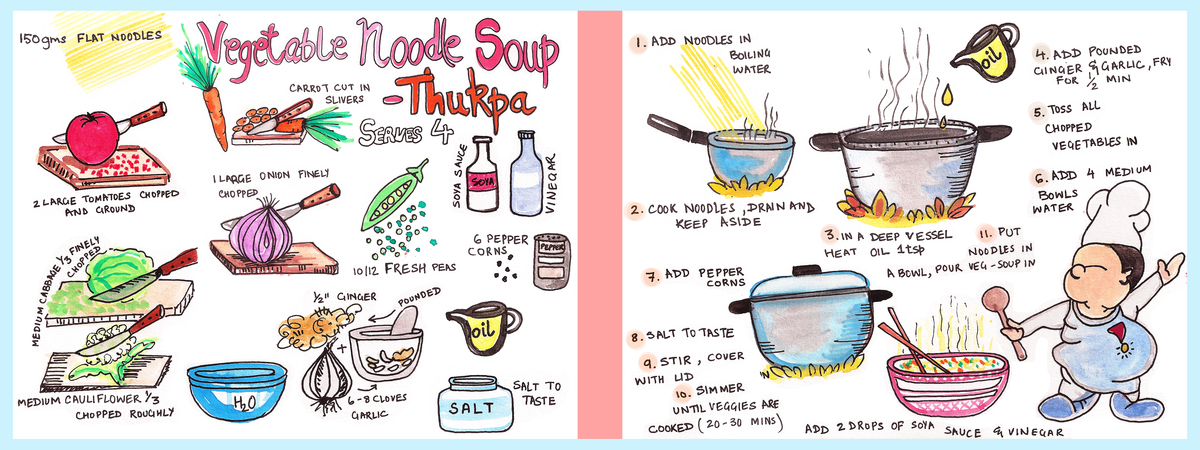 150gms FLAT NOODLES
Vegetable Noodle Soup
-Thukpa
SERVES 4
CARROT CUT IN
SLIVERS
2 LARGE TOMATOES CHOPPED
AND GROUND
1 LARGE ONION FINELY
CHOPPED
10/12 FRESH PEAS
SOYA SAUCE
SOYA
VINEGAR
6 PEPPER
CORNS
PEPPER
MEDIUM CABBAGE 1/3 FINELY
CHOPPED
MEDIUM CAULIFLOWER 1/3
CHOPPED ROUGHLY
H2O
1/2" GINGER
POUNDED
+
6-8 CLOVES
GARLIC
oil
SALT
SALT TO
TASTE
1. ADD NOODLES IN
BOILING
WATER
2. COOK NOODLES, DRAIN AND
KEEP ASIDE
3. IN A DEEP VESSEL
HEAT OIL 1tsp
oil
4. ADD POUNDED
GINGER & GARLIC, FRY
FOR 1/2 MIN
5. TOSS ALL
CHOPPED
VEGETABLES IN
6. ADD 4 MEDIUM
BOWLS
WATER
7. ADD PEPPER
CORNS
8. SALT TO TASTE
9. STIR, COVER
WITH LID
10. SIMMER
UNTIL VEGGIES ARE
COOKED (20-30 MINS)
11. PUT
NOODLES IN
A BOWL, POUR VEG-SOUP IN
IN
ADD 2 DROPS OF SOYA SAUCE & VINEGAR